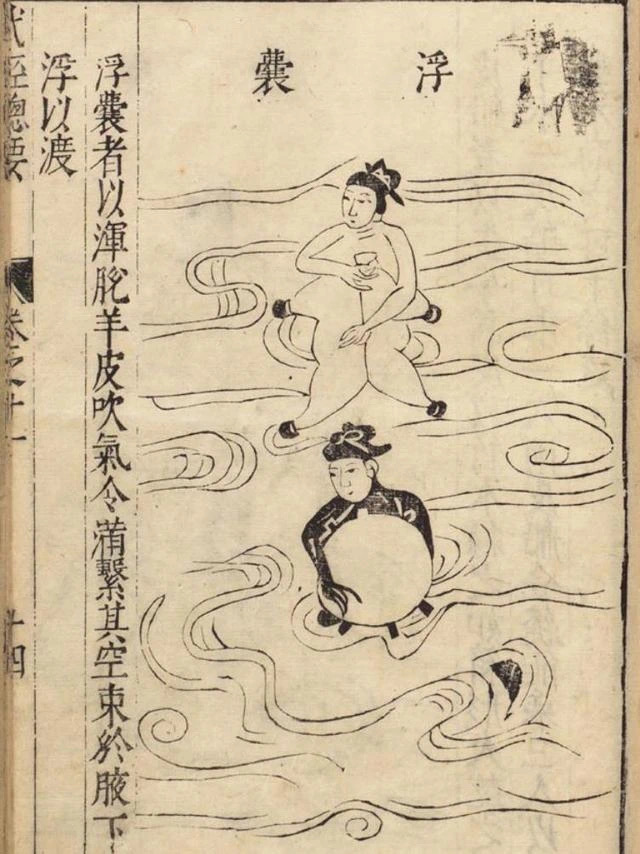 浮囊
浮囊者以渾脫羊皮吹氣令滿繫其空束於腋下
浮以渡
武經總要 卷之十一 十四